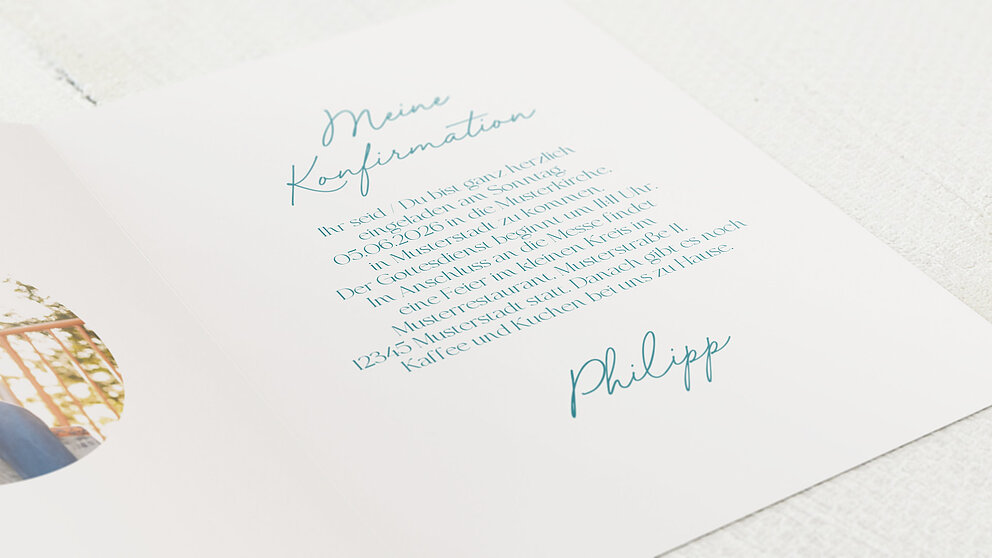 Meine
Konfirmation
Ihr seid / Du bist ganz herzlich
eingeladen am Sonntag,
05.06.2026 in die Musterkirche,
in Musterstadt zu kommen.
Der Gottesdienst beginnt um 11:11 Uhr.
Im Anschluss an die Messe findet
eine Feier im kleinen Kreis im
Musterrestaurant, Musterstraße 11,
12345 Musterstadt statt. Danach gibt es noch
Kaffee und Kuchen bei uns zu Hause.
Philipp